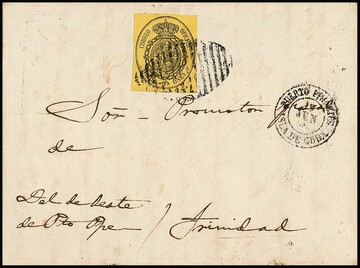 CORREO OFICIAL
ONZA
PUERTO PRINCIPE
JUN
ISLA DE CUBA
Sōr Promotor
de
Del de Oeste
de Pto Ppe / Trinidad